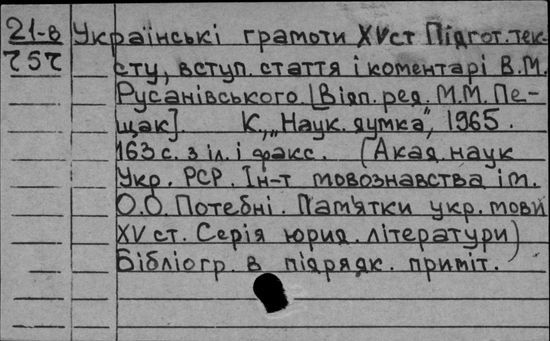 21-в Українські грамоти XV ст Підгот. тек-
757 сту, вступ. стаття і коментарі В.М.
Русанівського. [Відп. ред. М.М. Пе-
щак]. К., „Наук. думка", 1965.
163 с. з іл. і факс. (Акад. наук
Укр. РСР. Ін-т мовознавства ім.
О.О. Потебні. Пам'ятки укр. мови
XV ст. Серія юрид. літератури)
Бібліогр. в підрядк. приміт.